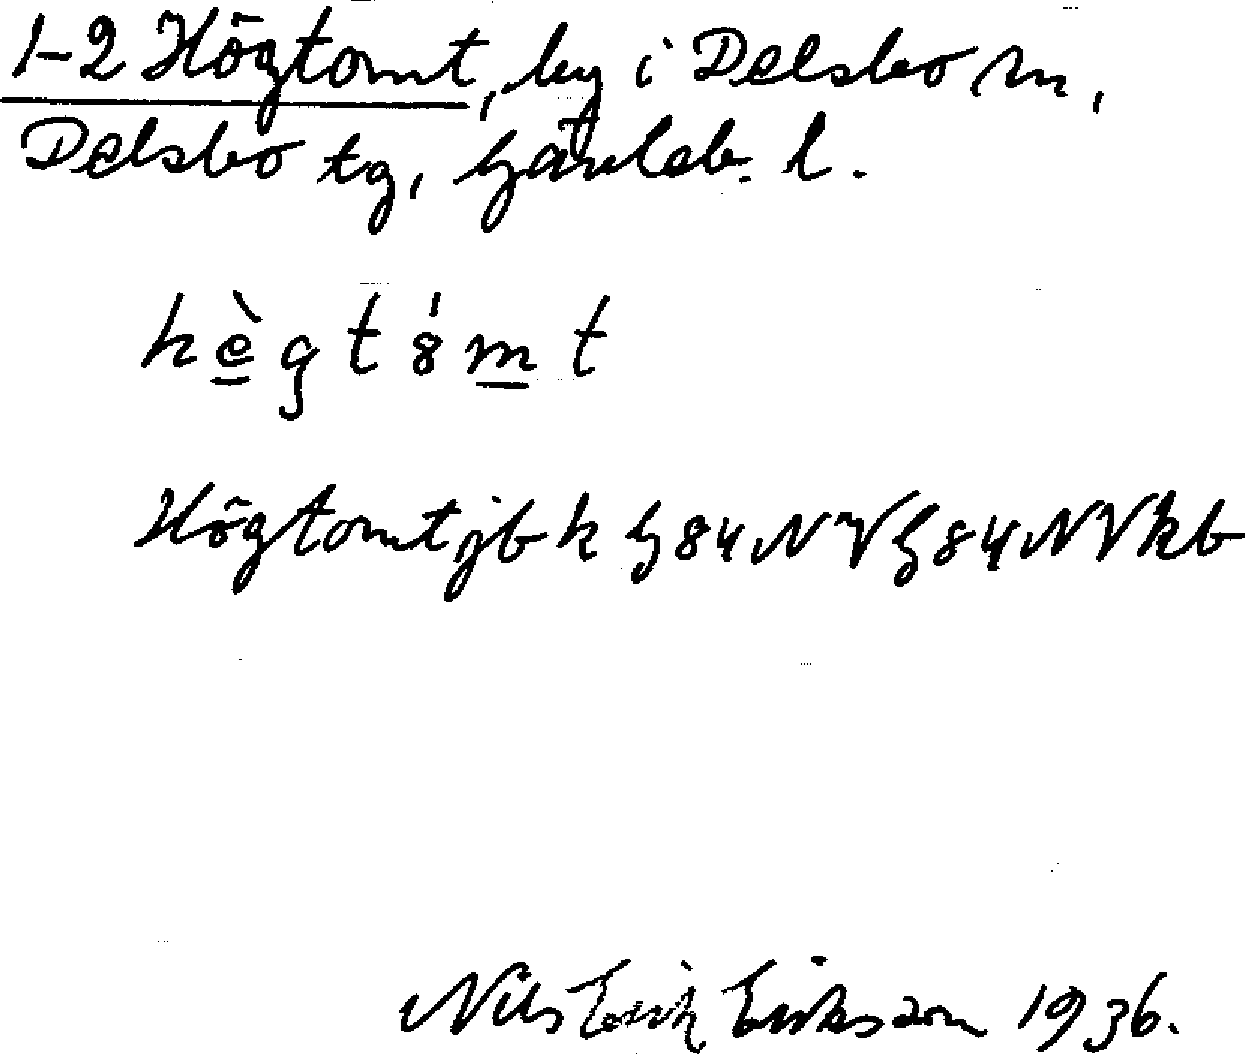 1-2 Högtomt, by i Delsbo sn,
Delsbo tg, Gävleb. l.
hègtómt
Högtomt jb k G84NV G84NV kb
Nils Erik Eriksson 1936.